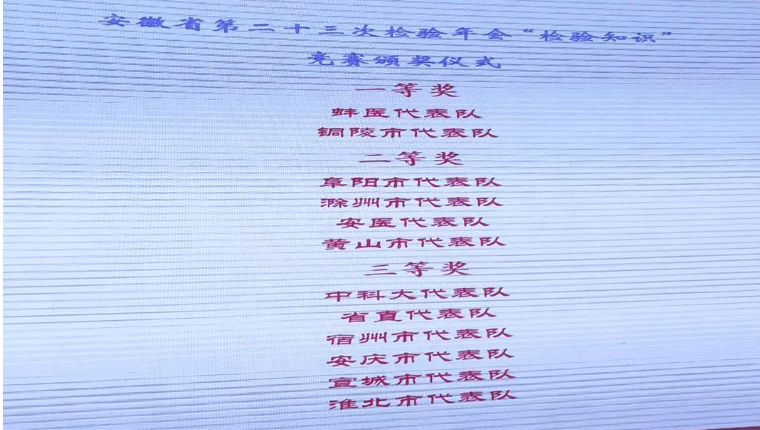 安徽省第二十三次检验年会“检验知识”
竞赛颁奖仪式
一等奖
蚌医代表队
铜陵市代表队
二等奖
阜阳市代表队
滁州市代表队
安医代表队
黄山市代表队
三等奖
中科大代表队
省直代表队
宿州市代表队
安庆市代表队
宣城市代表队
淮北市代表队